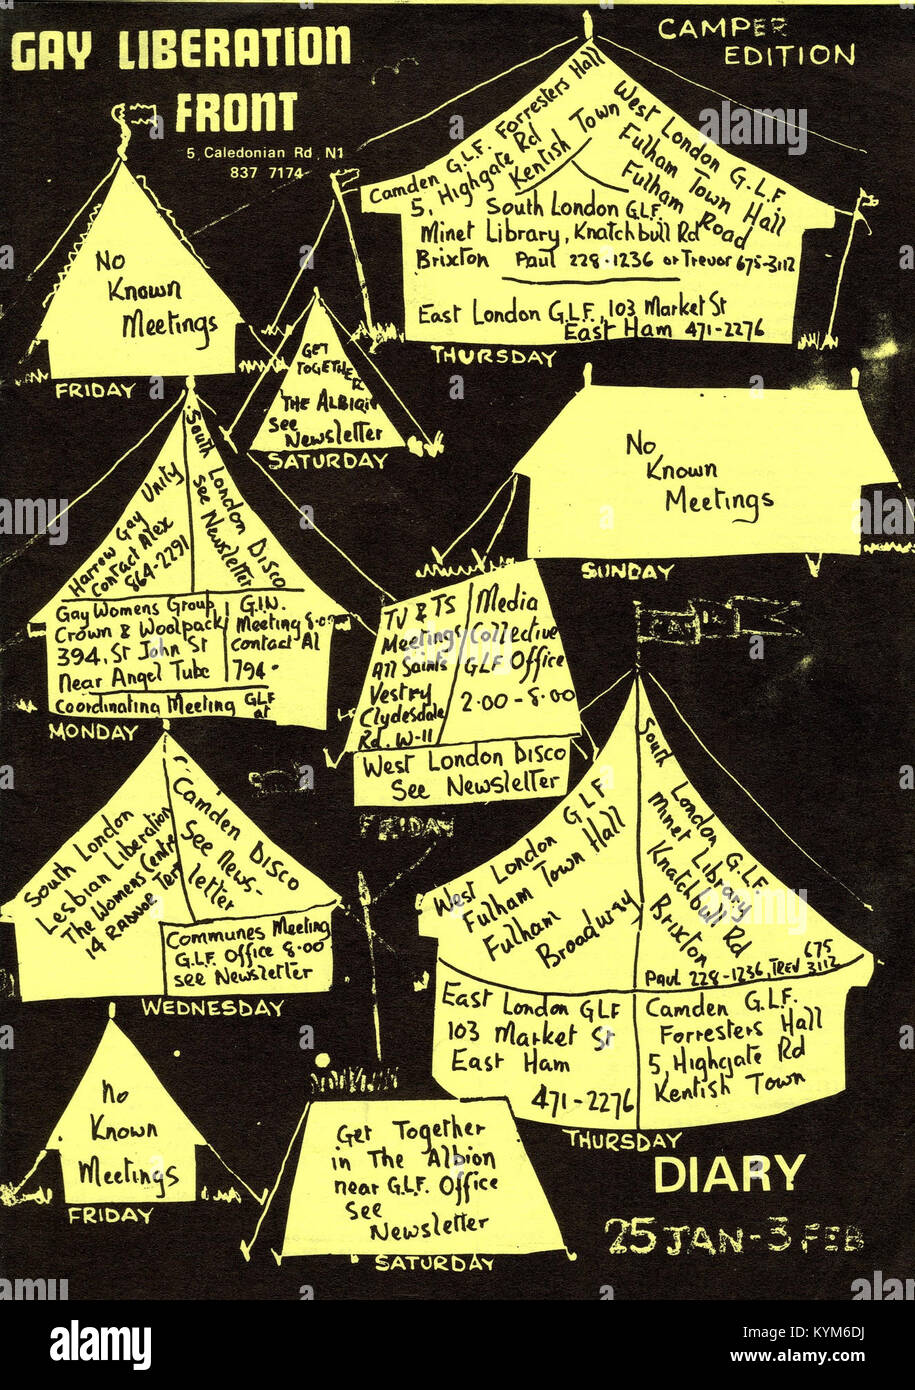 GAY LIBERATION
FRONT
5, Caledonian Rd, N1
837 7174
CAMPER
EDITION
Camden G.L.F. Forresters Hall
5, Highgate Rd
Kentish Town
West London G.L.F.
Fulham Town Hall
Fulham Road
South London G.L.F.
Minet Library, Knatchbull Rd
Brixton Paul 228-1236 or Trevor 675-3112
East London G.L.F., 103 Market St
East Ham 471-2276
THURSDAY
No
Known
Meetings
FRIDAY
GET
TOGETHER
THE ALBION
See
Newsletter
SATURDAY
No
Known
Meetings
SUNDAY
Harrow Gay Unity
Contact Alex
864-2291
South London Disco
see Newsletter
Gay Womens Group
Crown & Woolpack
394, St John St
Near Angel Tube
G.I.N.
Meeting 8.00
Contact Al
794-
Coordinating Meeting GLF
at
MONDAY
TV & TS
Meetings
All Saints
Vestry
Clydesdale
Rd. W-11
Media
Collective
GLF Office
2.00-8.00
West London Disco
See Newsletter
FRIDAY
South London
Lesbian Liberation
The Womens Centre
14 Terr
Camden Disco
See News-
letter
Communes Meeting
G.L.F. Office 8.00
see Newsletter
WEDNESDAY
West London G.L.F
Fulham Town Hall
Fulham
Broadway
South London G.L.F.
Minet Library
Knatchbull Rd
Brixton
Paul 228-1236, TREV 675
3112
East London GLF
103 Market St
East Ham
471-2276
Camden G.L.F.
Forresters Hall
5, Highgate Rd
Kentish Town
THURSDAY
No
Known
Meetings
FRIDAY
Get Together
in The Albion
near G.L.F. Office
See
Newsletter
SATURDAY
DIARY
25 JAN-3 FEB
alamy
Image ID: KYM6DJ
www.alamy.com